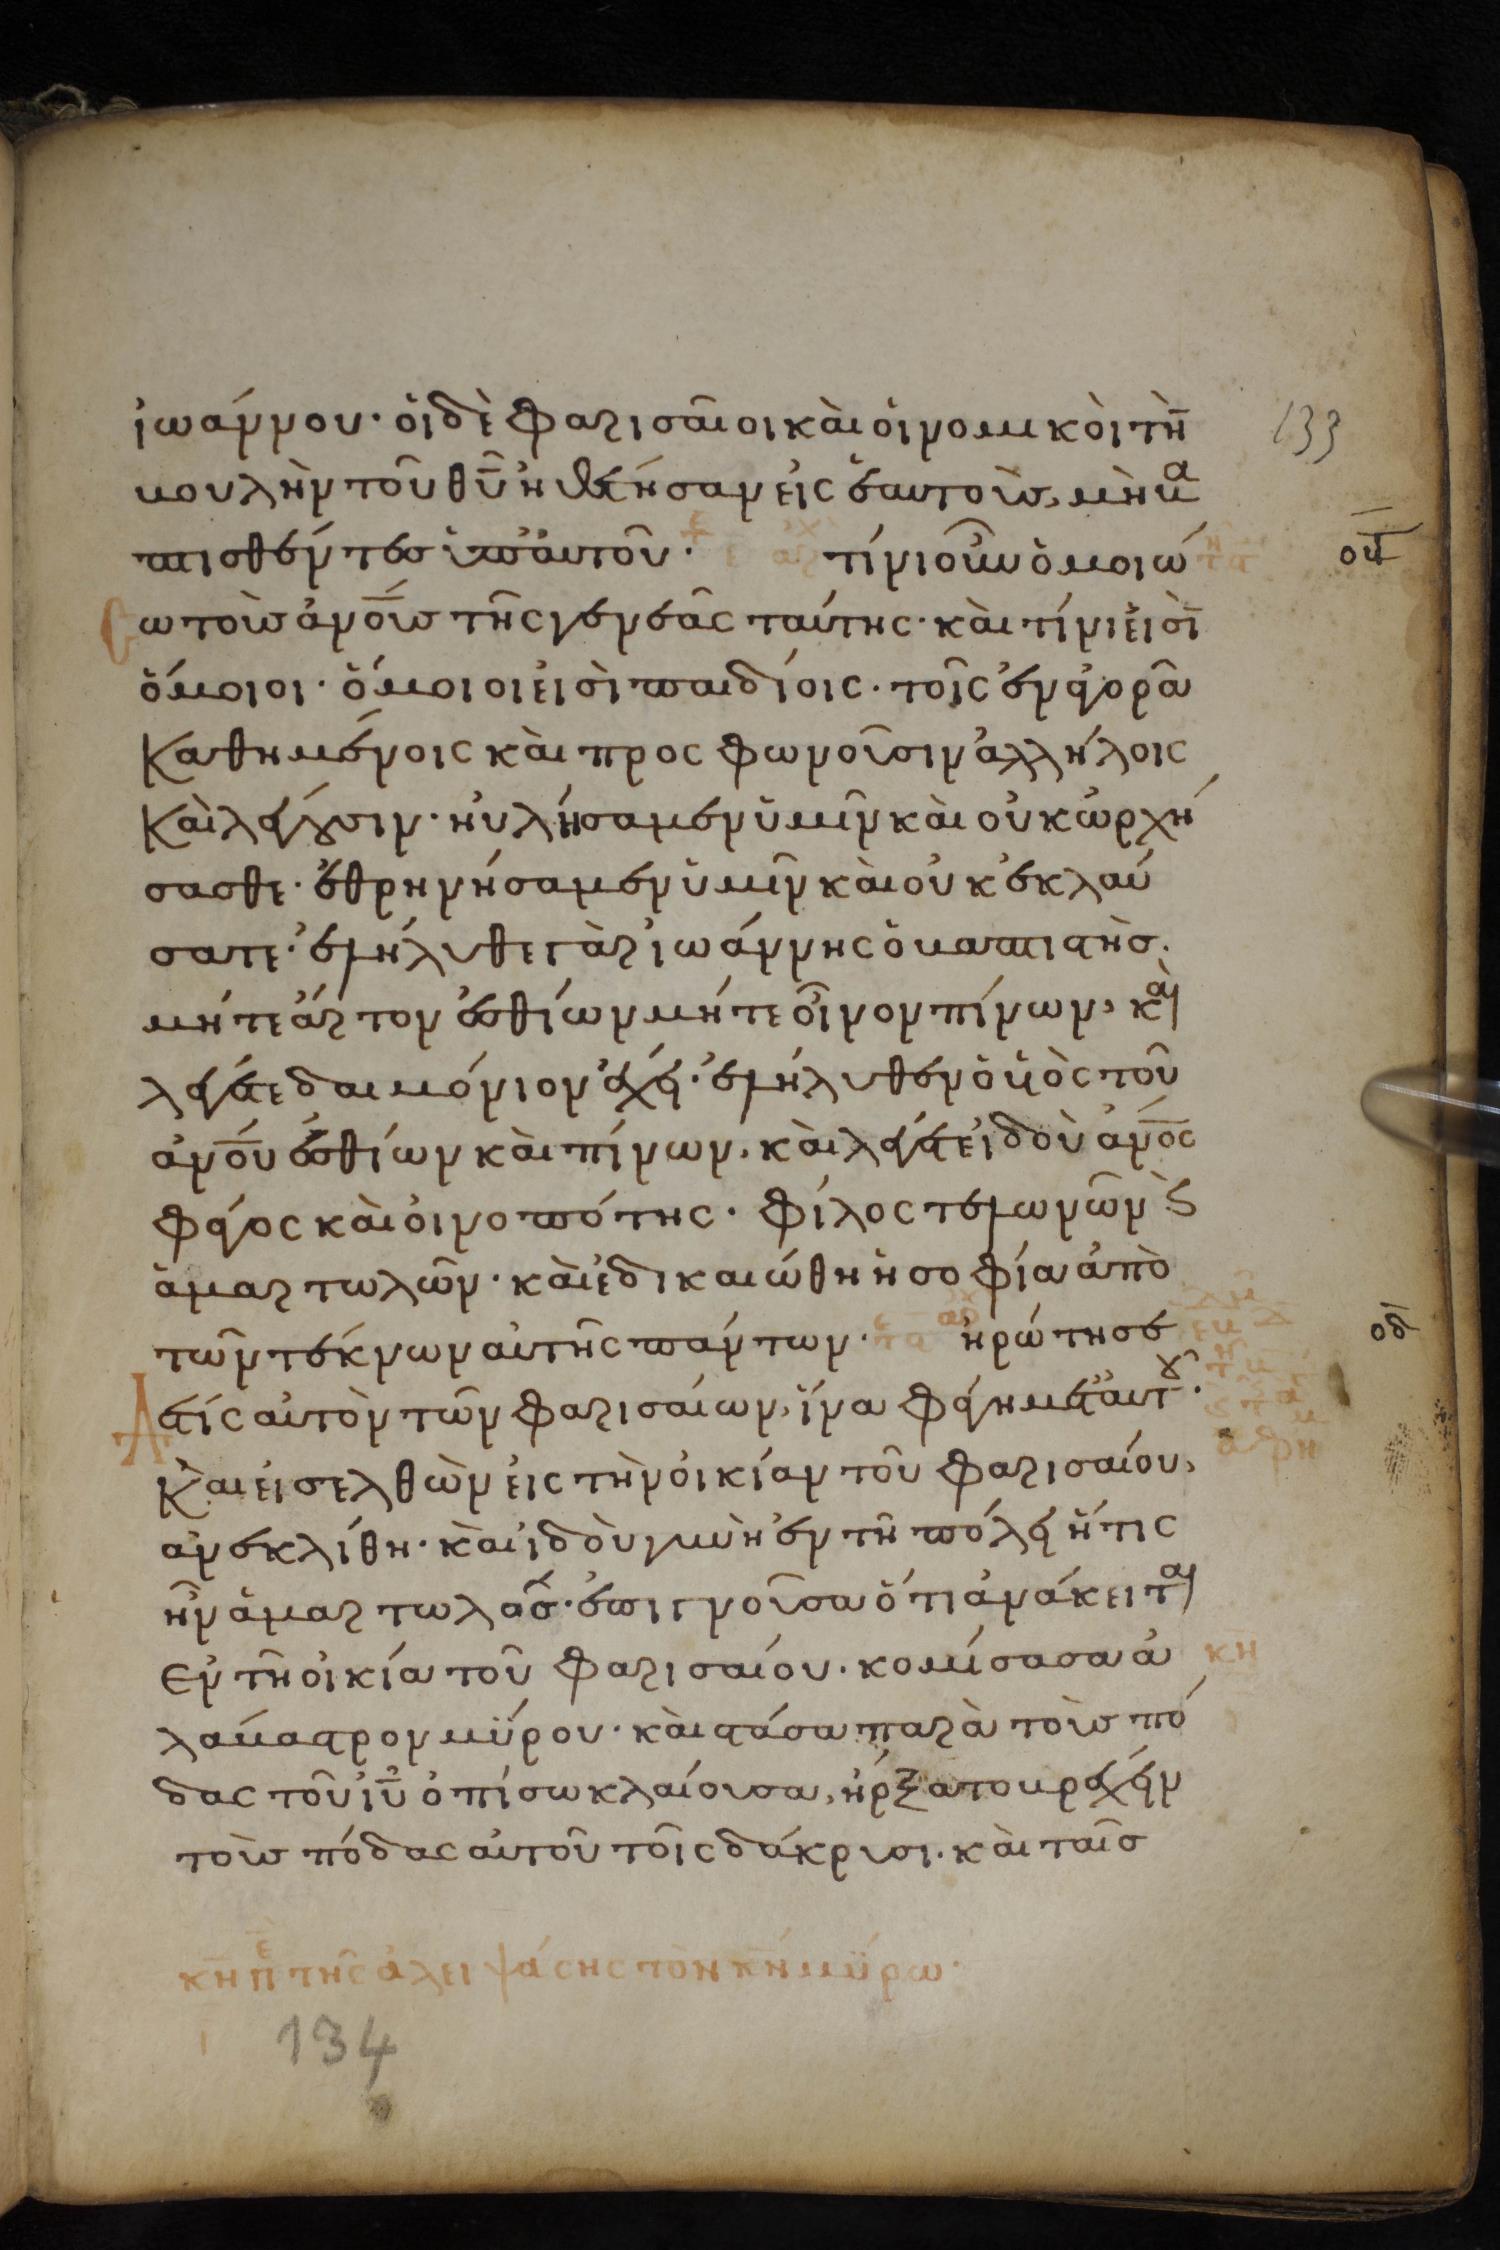 ἰωάννου· ὁι δὲ φαρισαῖοι κὰι ὁι νομικὸι τὴν̅
βουλὴν τοῦ θ̅υ̅ ἠθέτησαν εἰς ἑαυτοὺς, μὴ βα
πτισθέντες ὑπ' ἀυτοῦ· τίνι οὖν ὁμοιώ
σω τοὺς ἀν̅ο̅υ̅ς τῆς γενεᾶς ταύτης· κὰι τίνι εἰσὶ̅
ὅμοιοι· ὅμοιοι εἰσὶ παιδίοις· τοῖς ἐν ἀγορᾶ
καθημένοις κὰι προσφωνοῦσιν ἀλλήλοις
κὰι λέγουσιν· ηὐλήσαμεν ὑμῖν κὰι οὐκ ὠρχή
σασθε· ἐθρηνήσαμεν ὑμῖν κὰι οὐκ ἐκλαύ
σατε· ἐλήλυθε γὰρ ἰωάννης ὁ βαπτιστὴσ·
μήτε ἄρτον ἐσθίων μήτε οἶνον πίνων, κὰι
λέγετε δαιμόνιον ἔχει· ἐλήλυθεν ὁ ὑ̅ὸς τοῦ
ἀν̅ο̅υ̅ ἐσθίων κὰι πίνων, κὰι λέγετε ἰδοὺ ἀν̅ο̅ς
φάγος κὰι οἰνοπότης· φίλος τελωνῶν ϛ̀
ἁμαρτωλῶν· κὰι ἐδικαιώθη ἡ σοφία ἀπὸ
τῶν τέκνων αὐτῆς πάντων· ἠρώτησε
δέ τίς αὐτὸν τῶν φαρισαίων, ἵνα φάγη μετ' ἀυτοῦ·
κὰι εἰσελθὼν εἰς τὴν οἰκίαν τοῦ φαρισαίου,
ἀνεκλίθη· κὰι ἰδοὺ γυνὴ ἐν τῆ πόλει ἥτις
ἦν ἁμαρτωλὸσ· ἐπιγνοῦσα ὅτι ἀνάκειται
ἐν τῆ οἰκία τοῦ φαρισαίου· κομίσασα ἀ
λάβαστρον μύρου· κὰι στάσα παρὰ τοὺς πό
δας τοῦ ἰ̅υ̅ ὀπίσω κλαίουσα, ἤρξατο βρέχειν
τοὺς πόδας αὐτοῦ τοῖς δάκρυσι· κὰι ταῖσ
κ̅η̅
κ̅η̅ πε τῆς ἀλειψάσης τὸν κ̅ν̅ μύρω·
133
134